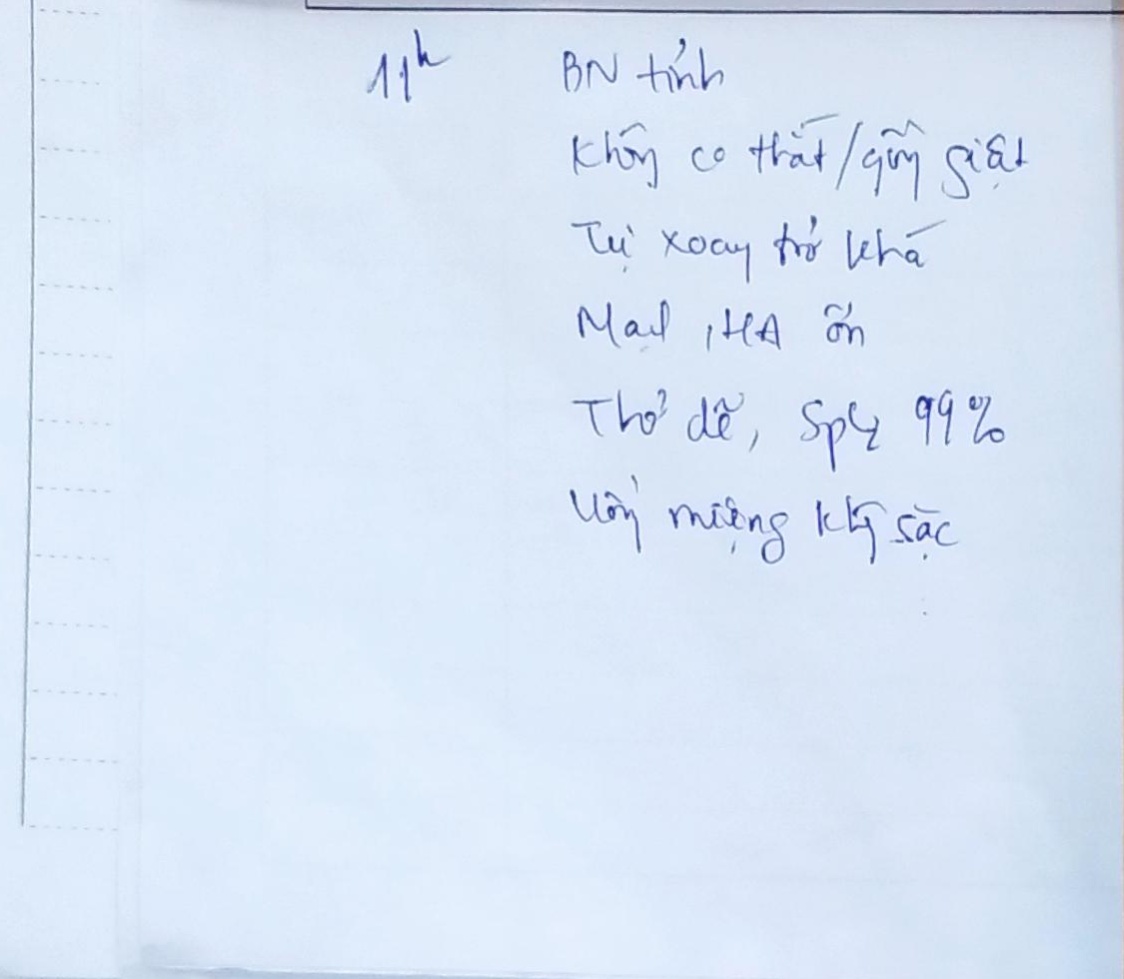 11h BN tỉnh
Không co thắt/gồng giật
Tự xoay trở khá
Mạch, HA ổn
Thở dễ, SpO2 99%
Uống miệng không sặc